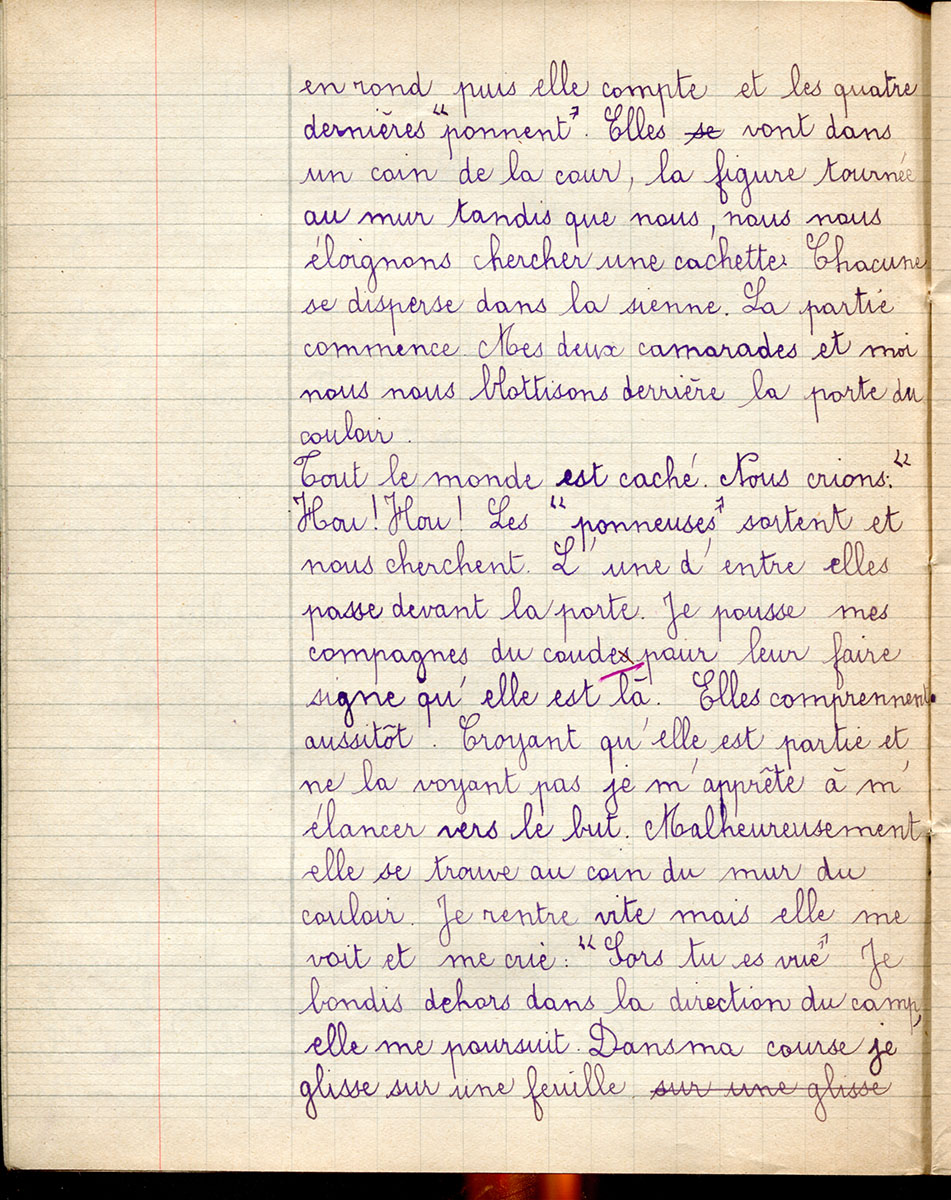 en rond puis elle compte et les quatre
dernières "ponnent". Elles se vont dans
un coin de la cour, la figure tournée
au mur tandis que nous, nous nous
éloignons chercher une cachette. Chacune
se disperse dans la sienne. La partie
commence. Mes deux camarades et moi
nous nous blottisons derrière la porte du
couloir.
Tout le monde est caché. Nous crions: "
Hou! Hou! Les "ponneuses" sortent et
nous cherchent. L'une d'entre elles
passe devant la porte. Je pousse mes
compagnes du coudex pour leur faire
signe qu'elle est là. Elles comprennent
aussitôt. Croyant qu'elle est partie et
ne la voyant pas je m'apprête à m'
élancer vers le but. Malheureusement
elle se trouve au coin du mur du
couloir. Je rentre vite mais elle me
voit et me crie: "Sors tu es vue" Je
bondis dehors dans la direction du camp,
elle me poursuit. Dans ma course je
glisse sur une feuille sur une glisse